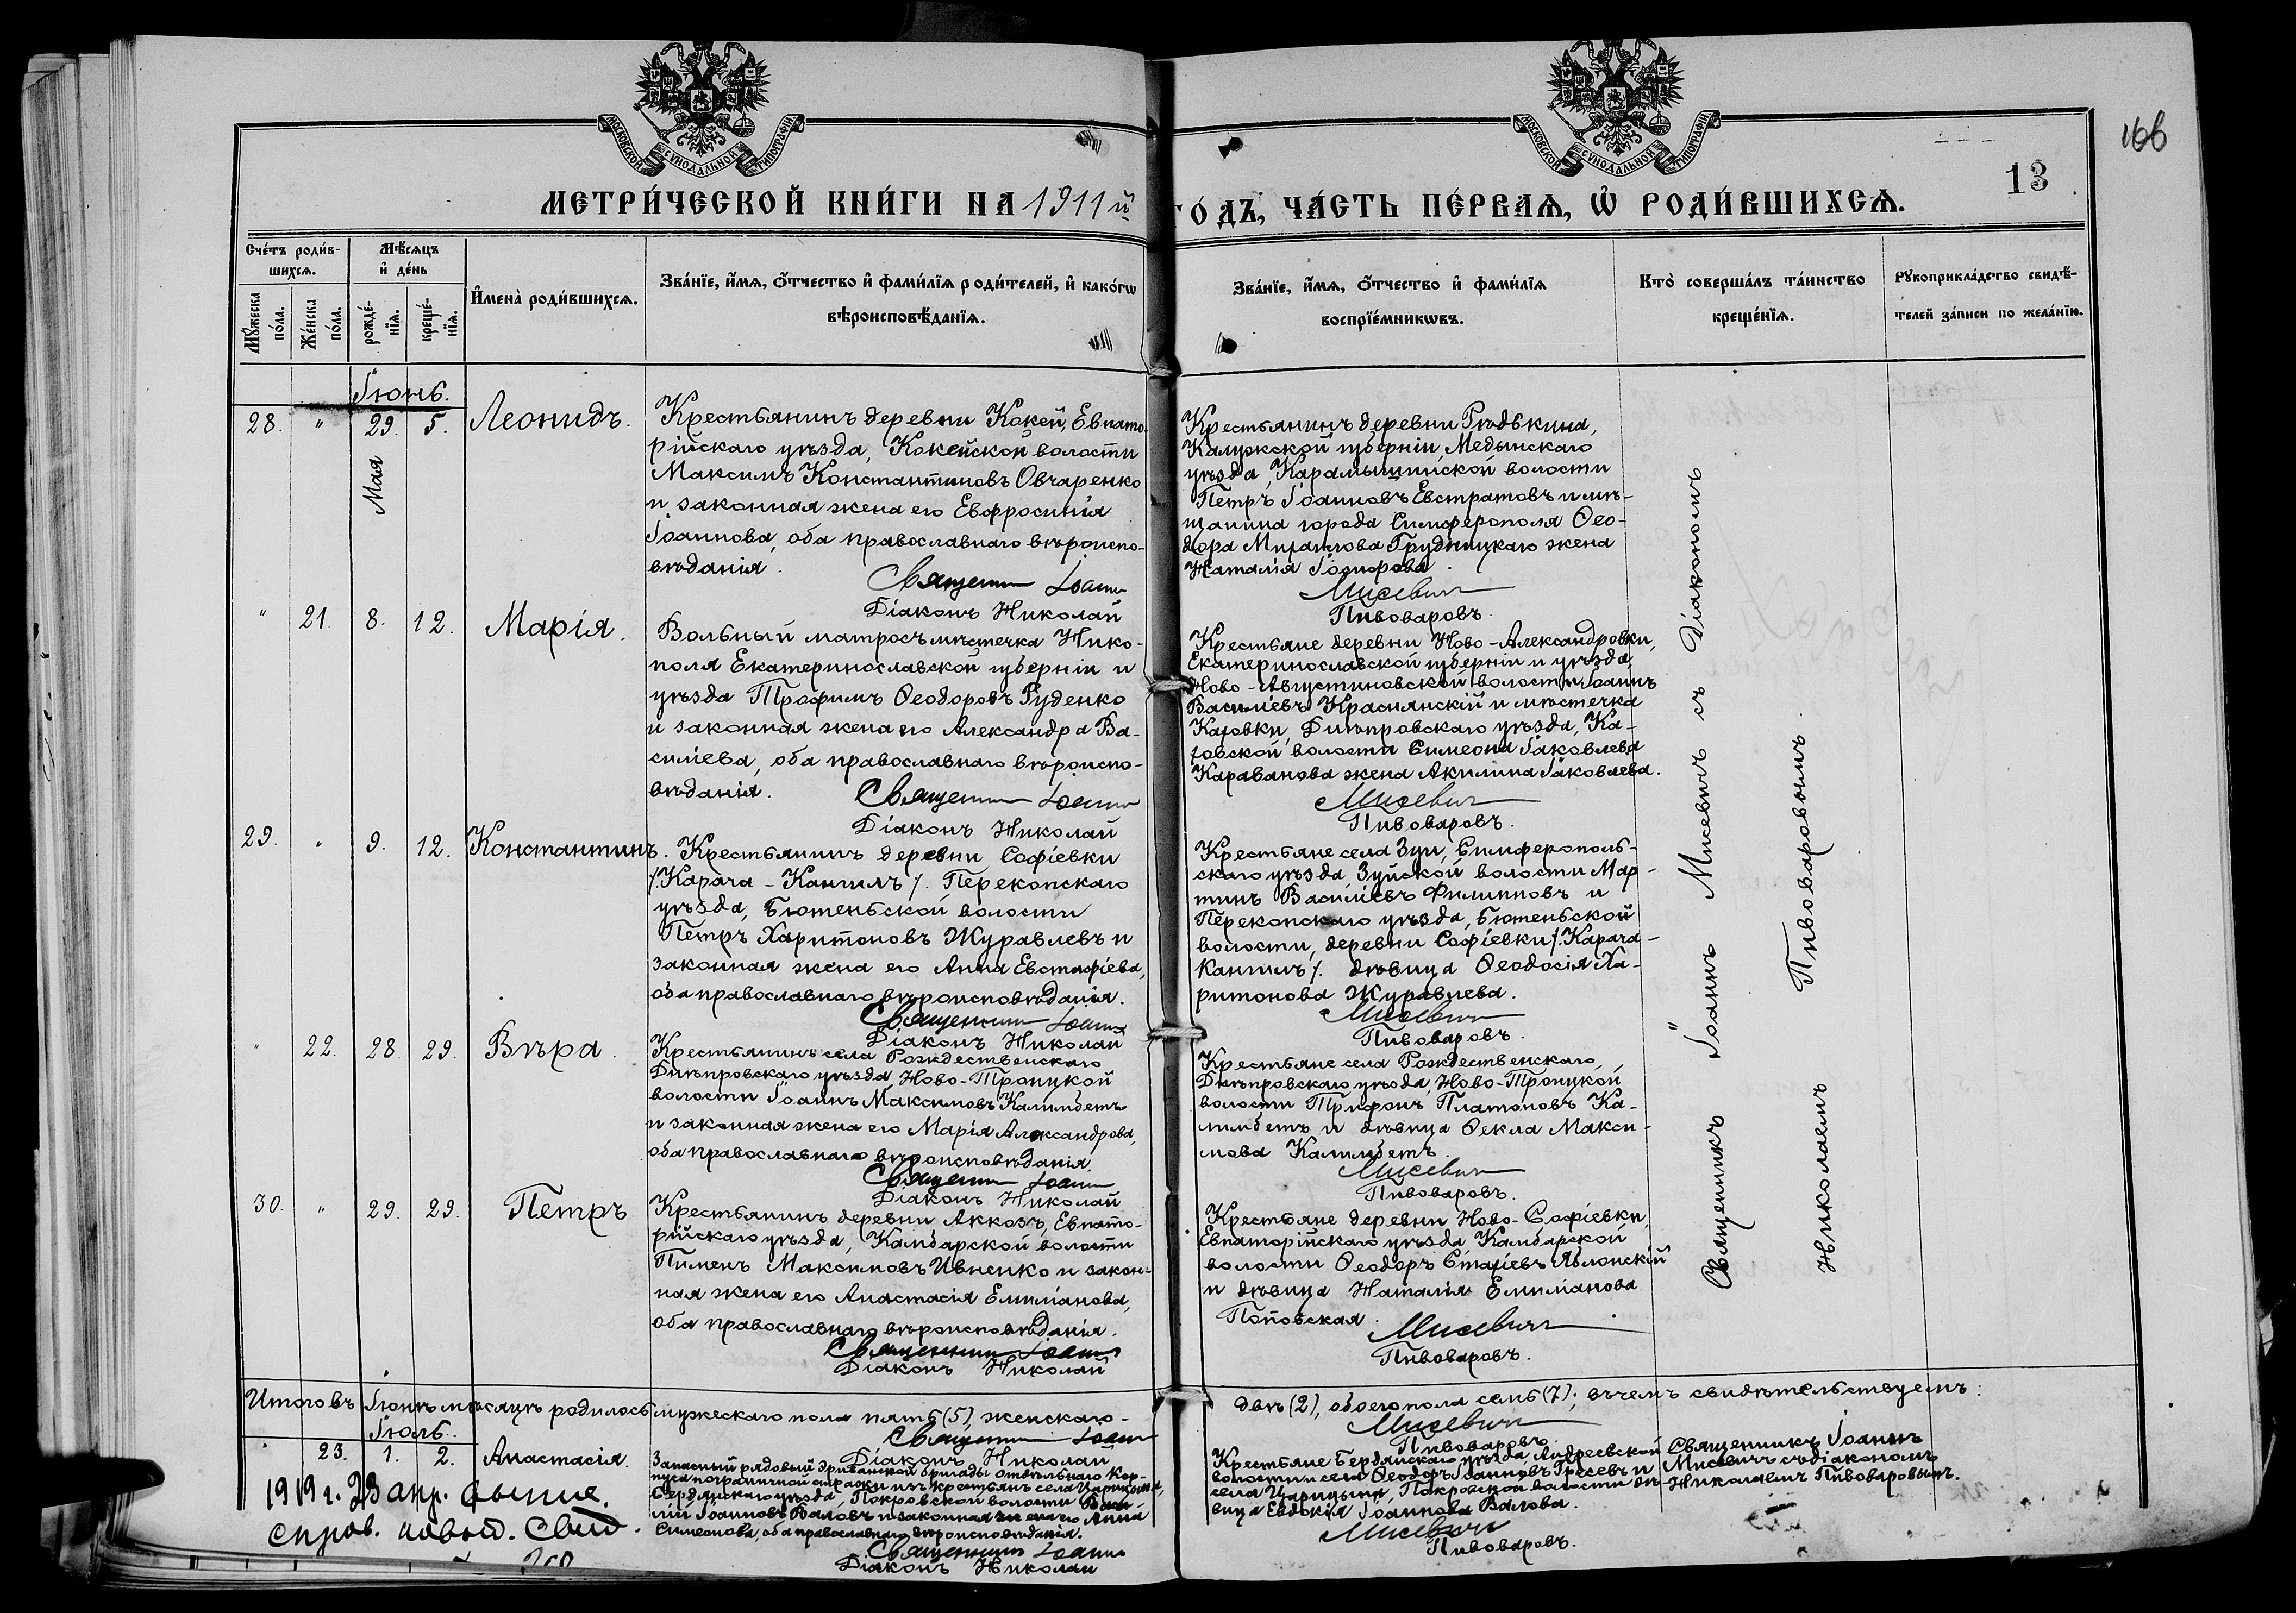 166
13
МОСКОВСКОЙ СѴНОДАЛЬНОЙ ТИПОГРАФІИ
МОСКОВСКОЙ СѴНОДАЛЬНОЙ ТИПОГРАФІИ
МЕТРИ́ЧЕСКОЙ КНИ́ГИ НА 1911й ГО́ДЪ, ЧА́СТЬ ПЕ́РВАѦ, Ѡ҆ РОДИ́ВШИХСѦ.
Сче́тъ роди́в-
шихсѧ.
Мꙋ́жеска
по́ла.
Же́нска
по́ла.
Мѣ́сѧцъ
и҆ де́нь
рожде́-
нїѧ.
креще́-
нїѧ.
И҆мена̀ роди́вшихсѧ.
Зва́нїе, и҆́мѧ, ѻ҆́тчество и҆ фами́лїѧ роди́телей, и҆ како́гѡ
вѣроисповѣ́данїѧ.
Зва́нїе, и҆́мѧ, ѻ҆́тчество и҆ фами́лїѧ
воспрїе́мникѡвъ.
Кто̀ соверша́лъ та́инство
креще́нїѧ.
Рꙋкоприкла́дство свидѣ́-
телей за́писи по жела́нїю.
Іюнь.
28. " 29. 5. Леонидъ.
Мая
Крестьянинъ деревни Кокей, Евпато-
рійскаго уѣзда, Кокейской волости
Максимъ Константиновъ Овчаренко
и законная жена его Евфросинія
Іоаннова, оба православнаго вѣроиспо-
вѣданія.
Священникъ Іоаннъ
Діаконъ Николай
Крестьянинъ деревни Рѣдькина,
Калужской губерніи, Медынскаго
уѣзда, Карамышинской волости
Петръ Іоанновъ Евстратовъ и мѣ-
щанина города Симферополя Ѳео-
дора Михаилова Грудницкаго жена
Наталія Іосифова.
Мисевичъ
Пивоваровъ.
" 21. 8. 12. Марія.
Вольный матросъ мѣстечка Нико-
поля Екатеринославской губерніи и
уѣзда Трофимъ Ѳеодоровъ Руденко
и законная жена его Александра Ва-
силіева, оба православнаго вѣроиспо-
вѣданія.
Священникъ Іоаннъ
Діаконъ Николай
Крестьяне деревни Ново-Александровки,
Екатеринославской губерніи и уѣзда,
Ново-Августиновской волости Іоаннъ
Василіевъ Краснянскій и мѣстечка
Каховки, Днѣпровскаго уѣзда, Ка-
ховской волости Симеона Іаковлева
Караванова жена Акилина Іаковлева.
Мисевичъ
Пивоваровъ.
29. " 9. 12. Константинъ.
Крестьянинъ деревни Софіевки
/:Карача-Кангилъ:/ Перекопскаго
уѣзда, Бютеньской волости
Петръ Харитоновъ Журавлевъ и
законная жена его Анна Евстафіева,
оба православнаго вѣроисповѣданія.
Священникъ Іоаннъ
Діаконъ Николай
Крестьяне села Зуи, Симферополь-
скаго уѣзда, Зуйской волости Мар-
тинъ Василіевъ Филипповъ и
Перекопскаго уѣзда, Бютеньской
волости, деревни Софіевки /:Карача-
Кангилъ:/ дѣвица Ѳеодосія Ха-
ритонова Журавлева.
Мисевичъ
Пивоваровъ.
" 22. 28. 29. Вѣра.
Крестьянинъ села Рождественскаго
Днѣпровскаго уѣзда, Ново-Троицкой
волости Іоаннъ Максимовъ Калимбетъ
и законная жена его Марія Александрова,
оба православнаго вѣроисповѣданія.
Священникъ Іоаннъ
Діаконъ Николай
Крестьяне села Рождественскаго,
Днѣпровскаго уѣзда, Ново-Троицкой
волости Трифонъ Платоновъ Ка-
лимбетъ и дѣвица Ѳекла Макси-
мова Калимбетъ.
Мисевичъ
Пивоваровъ.
30. " 29. 29. Петръ
Крестьянинъ деревни Аккозъ, Евпато-
рійскаго уѣзда, Камбарской волости
Пименъ Максимовъ Ивненко и закон-
ная жена его Анастасія Емиліанова,
оба православнаго вѣроисповѣданія.
Священникъ Іоаннъ
Діаконъ Николай
Крестьяне деревни Ново-Софіевки,
Евпаторійскаго уѣзда Камбарской
волости Ѳеодоръ Стахіевъ Яблонскій
и дѣвица Наталія Емиліанова
Поповская.
Мисевичъ
Пивоваровъ.
Священникъ Іоаннъ Мисевичъ съ Діакономъ
Николаемъ Пивоваровымъ.
Итого въ Іюнѣ мѣсяцѣ родилось мужескаго пола пять (5), женскаго-
двѣ (2), обоего пола семь (7); въ чемъ свидѣтельствуемъ:
Священникъ Іоаннъ
Мисевичъ
Діаконъ Николай
Пивоваровъ.
Іюль.
" 23. 1. 2. Анастасія.
Запасный рядовый Эриванской бригады отдѣльнаго Кор-
пуса пограничной стражи изъ крестьянъ села Царицына,
Бердянскаго уѣзда, Покровской волости Васи-
лій Іоанновъ Валовъ и законная жена его Анна
Симеонова, оба православнаго вѣроисповѣданія.
Священникъ Іоаннъ
Діаконъ Николай
Крестьяне Бердянскаго уѣзда, Андреевской
волости и села Ѳеодоръ Іоанновъ и
села Царицына, Покровской волости дѣ-
вица Евдокія Іоаннова Валова.
Мисевичъ
Пивоваровъ.
Священникъ Іоаннъ
Мисевичъ съ діакономъ
Николаемъ Пивоваровымъ.
1919 г. 23 апр.